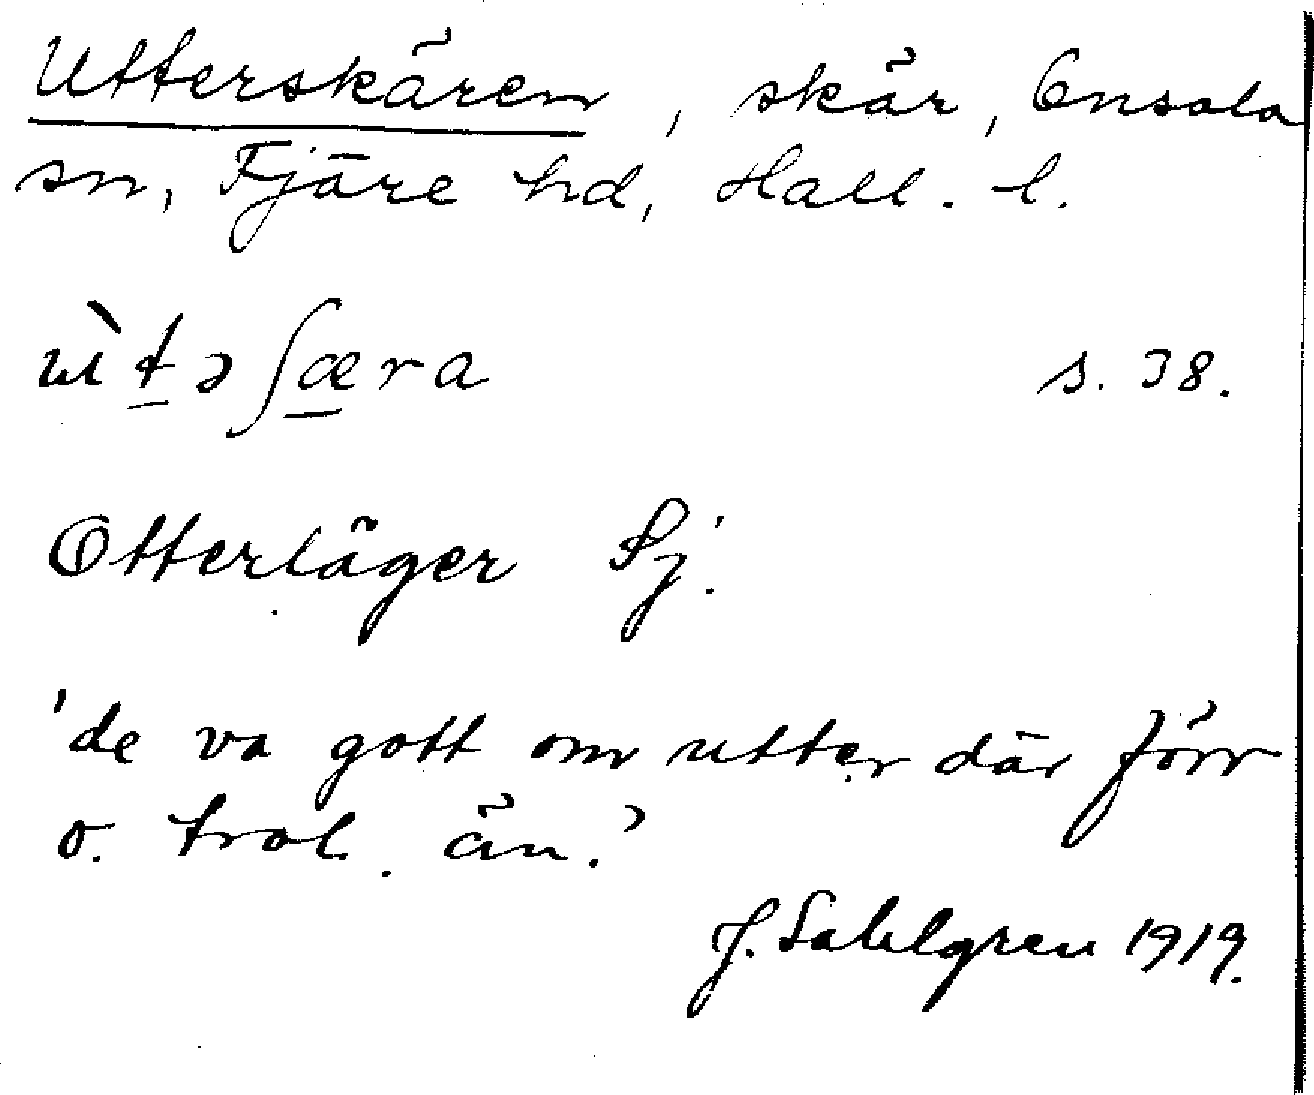 Utterskären, skär, Onsala
sn, Fjäre hd, Hall. l.
ùtəʃæra s. 38.
Otterläger Sj.
'de va gott om utter där förr
o. trol. än.'
J. Sahlgren 1919.